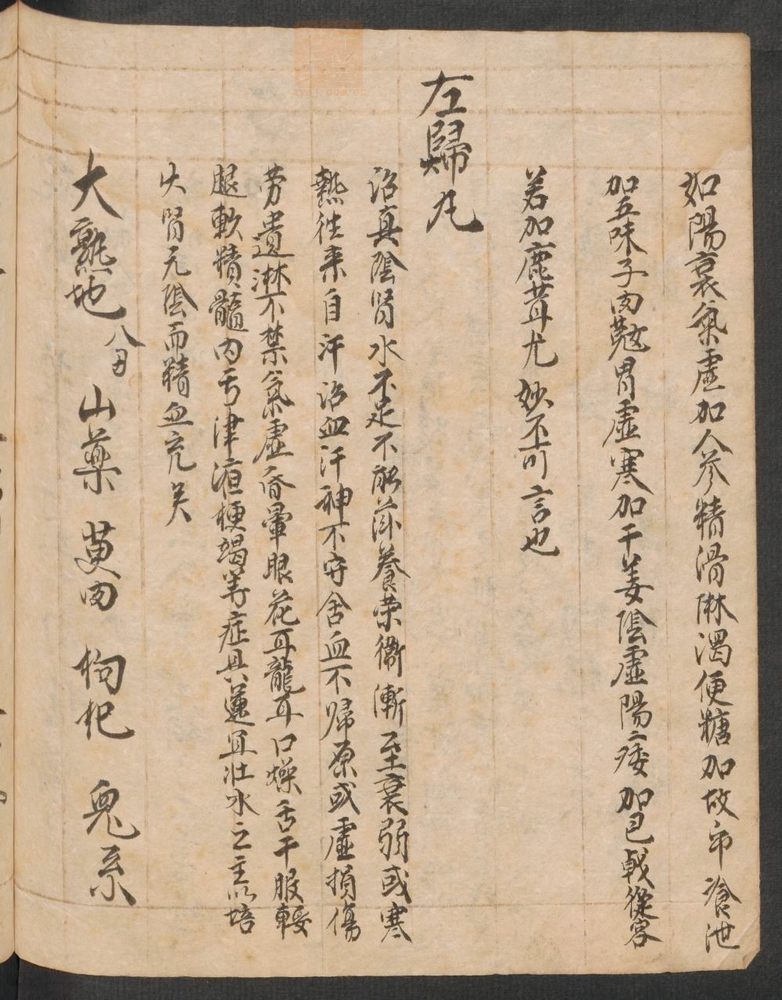 如陽衰氣虛加人參精滑淋濁便糖加故帋飱泄
加五味子肉蔲胃虛寒加干姜陰虛陽痿加巴戟從容
若加鹿茸尤妙不可言也
左歸丸
治真陰腎水不足不能滋養荣衞漸至衰弱或寒
熱往来自汗治血汗神不守舍血不歸原或虛損傷
劳遺淋不禁氣虛昏暈眼花耳龍耳口燥舌干服輭
腿軟精髓內亏津液梗竭等症具蓮宜壯水之主以培
大腎元陰而精血充矣
大熟地八刃 山藥 萸肉 枸杞 兔系